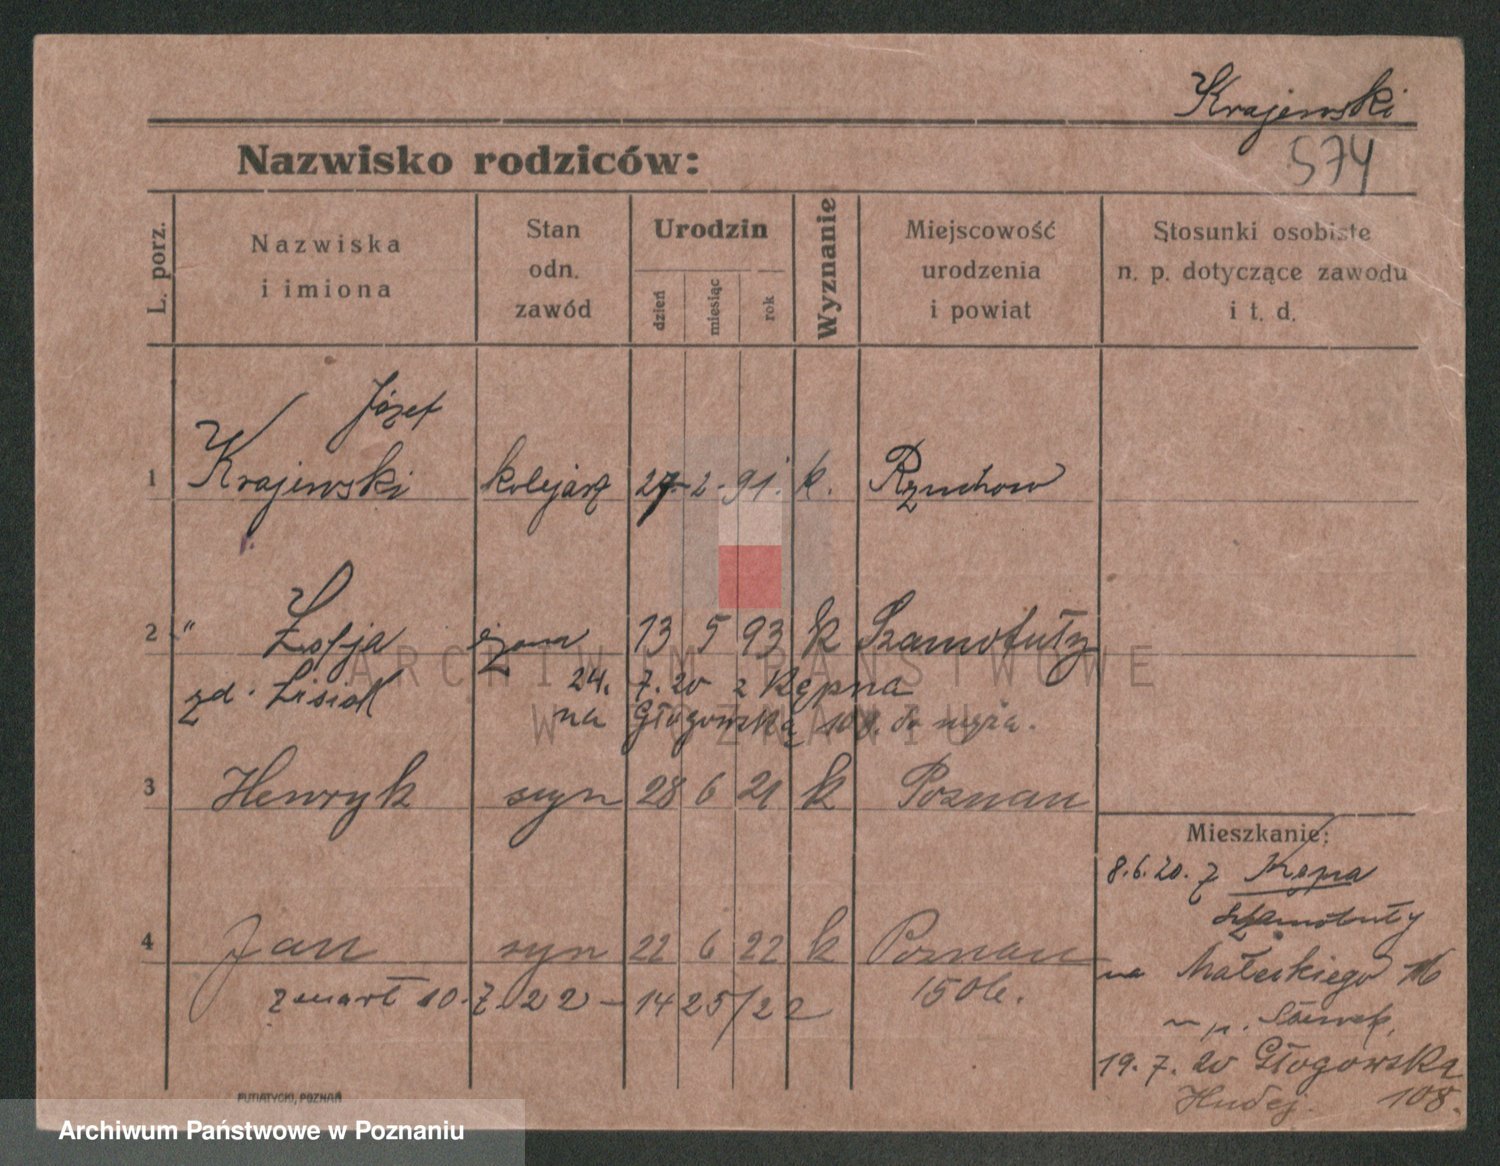 Krajewski
574
Nazwisko rodziców:
L. porz.
Nazwiska
i imiona
Stan
odn.
zawód
Urodzin
dzień
miesiąc
rok
Wyznanie
Miejscowość
urodzenia
i powiat
Stosunki osobiste
n. p. dotyczące zawodu
i t. d.
Józef
1 Krajewski kolejarz 27. 2. 91. k. Rzuchow
2 " Zofja żona 13 5 93 k Szamotuły
zd. Lisiak 24. 7. 20 z Kępna
na Głogowską 108. do męża.
3 Henryk syn 28 6 21 k Poznan
4 Jan syn 22 6 22 k Poznan
zmarł 10. 7. 22 - 1425/22
Mieszkanie:
8.6.20. z Kępna
Szamotuły
na Małeckiego 16
19. 7. 20 Głogowska
108.
PUTIATYCKI, POZNAŃ
ARCHIWUM PAŃSTWOWE
W POZNANIU
Archiwum Państwowe w Poznaniu